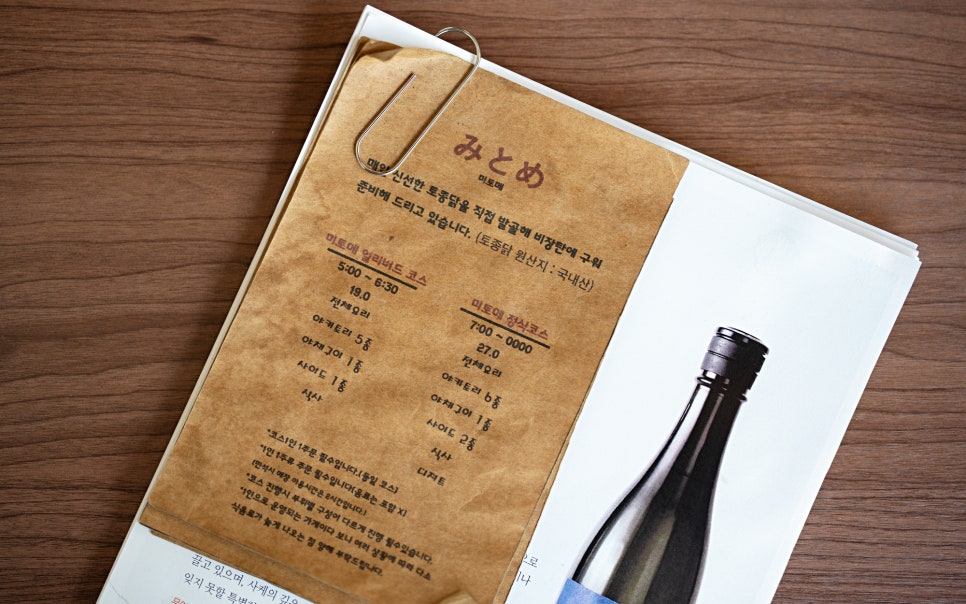 みとめ
미토메
매일 신선한 토종닭을 직접 발골해 비장탄에 구워
준비해 드리고 있습니다. (토종닭 원산지 : 국내산)
미토메 얼리버드 코스
5:00 ~ 6:30
19.0
전체요리
야키토리 5종
야채구이 1종
사이드 1종
식사
미토메 정식코스
7:00 ~ 0000
27.0
전체요리
야키토리 6종
야채구이 1종
사이드 2종
식사
디저트
*코스1인 1주문 필수입니다.(동일 코스)
*1인 1주류 주문 필수입니다(음료는 포함 X)
(만석시 매장 이용시간은 2시간입니다.)
*코스 진행시 부위별 구성이 다르게 진행 될수있습니다.
*1인으로 운영되는 가게이다 보니 여러 상황에 따라 다소
식음료가 늦게 나오는 점 양해 부탁드립니다.
으로
끌고 있으며, 사케의 깊은
이나
잊지 못할 특별한